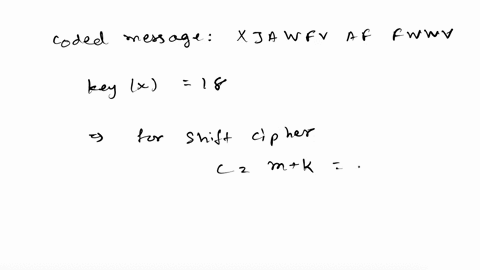 coded message: XJAWFV AF FWWV
key (x) = 18
⇒ for shift cipher
C = m+k = .